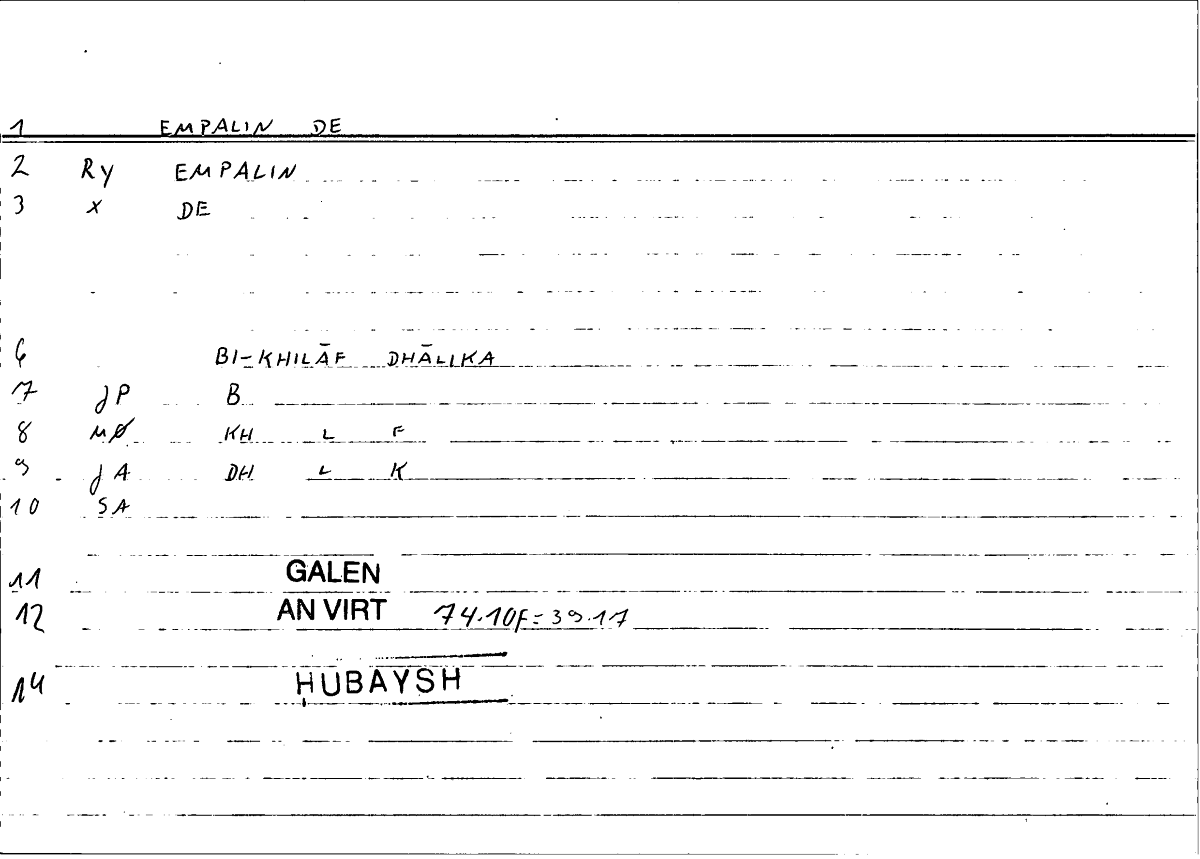 1 EMPALIN DE
2 Ry EMPALIN
3 x DE
6 BI-KHILĀF DHĀLIKA
7 JP B
8 MØ KH L F
9 JA DH L K
10 SA
11 GALEN
12 AN VIRT 74.10F=39.17
14 HUBAYSH